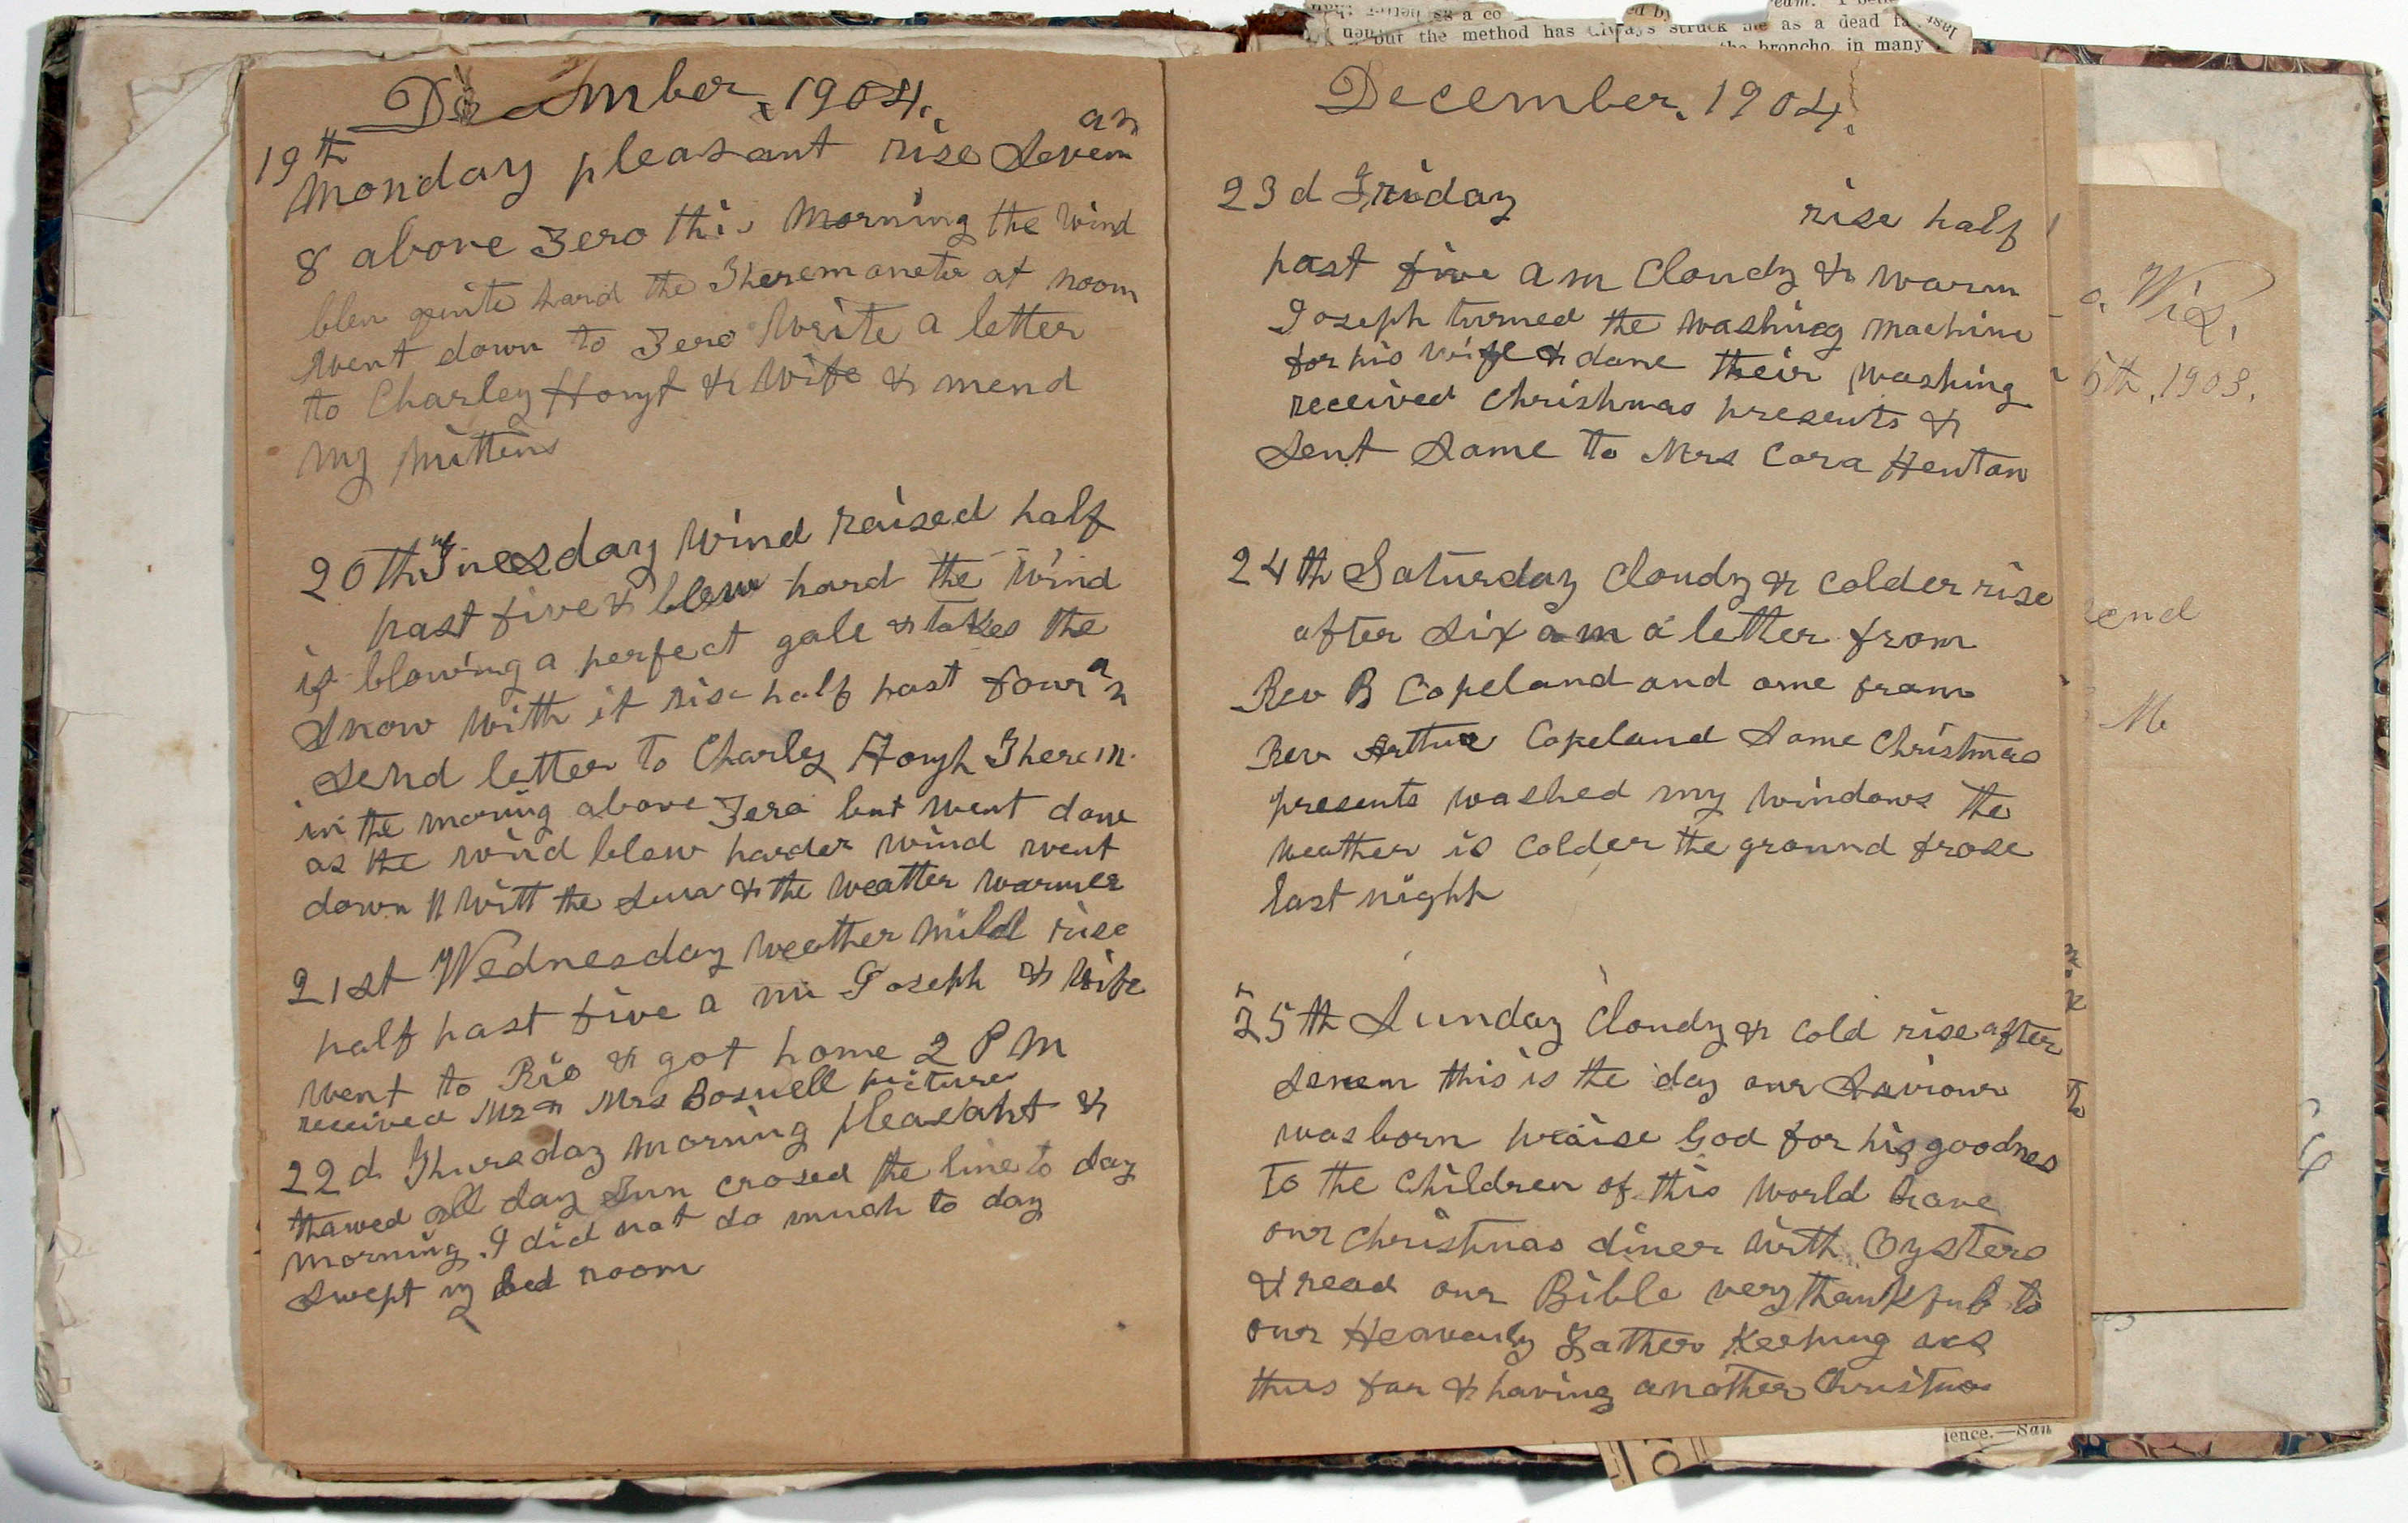 December, 1904.
19th Monday pleasant rise Seven am
8 above Zero this Morning the Wind
blew quite hard the Theremoneter at noon
Went down to Zero Write a letter
to Charley Hoyt & Wife & mend
My Mittins
20th Tuesday Wind raised half
past five & blew hard the Wind
is blowing a perfect gale & takes the
Snow With it rise half past four
Send letter to Charley Hoyh Therem.
in the moring above Zero but Went down
as the wind blew harder Wind went
down With the Sun & the Weatter Warmer
21st Wednesday Weather Mild rise
half past five a m Joseph & Wife
Went to Rio & got home 2 P M
received Mr & Mrs Bosuell picture
22d Thursday Morning pleasant &
thawed all day Sun crosed the line to day
Morning. I did not do much to day
Swept my bed room
December, 1904.
23d Friday rise half
past five a m Cloudy & Warm
Joseph turned the Washing Machine
for his Wife & done their Washing
received Christmas presents &
Sent Some to Mrs Cora Henton
24th Saturday Cloudy & Colder rise
after Six a m a letter from
Rev B Copeland and one from
Rev Arthur Copeland Some Christmas
presents washed my Windows The
Weather is Colder the ground froze
last night
25th Sunday Cloudy & Cold rise after
Seven this is the day our Saviour
was born praise God for his goodnes
To the Children of this World have
our Christmas diner With Oysters
& read our Bible very thankful to
our Heavenly Father Keeping us
thus far & having another Christmas
a, Wis.
6th, 1903.
end
M
To
but the method has always struck me as a dead
the broncho in many
ience.—San